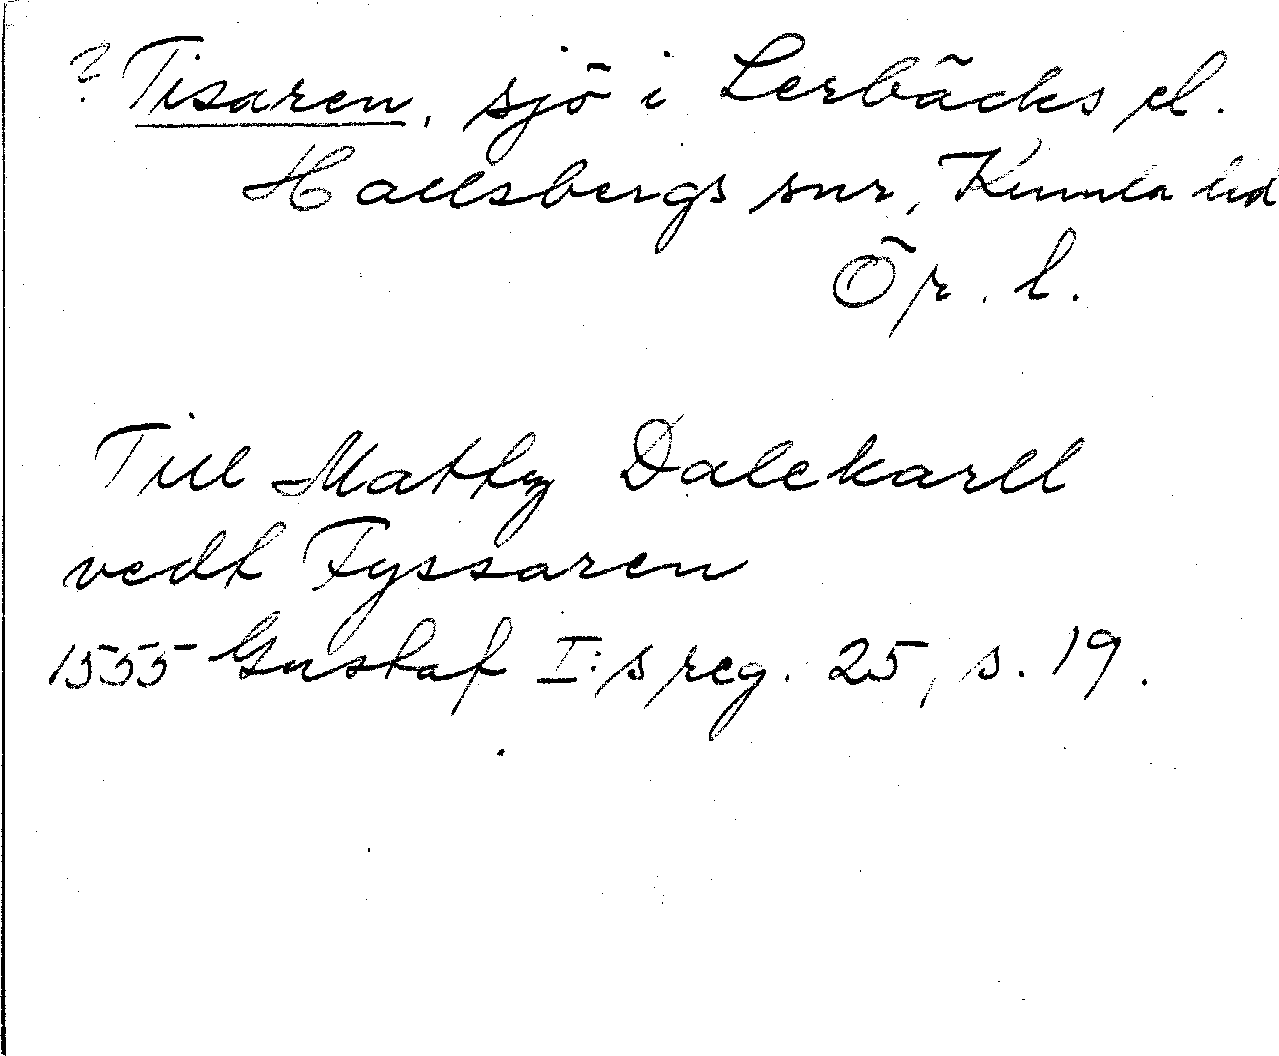 ? Tisaren, sjö i Lerbäcks el.
Hallsbergs snr, Kumla hd
Ör. l.
Till Mattz Dalekarll
vedt Tyssaren
1555 Gustaf I:s reg. 25, s. 19.